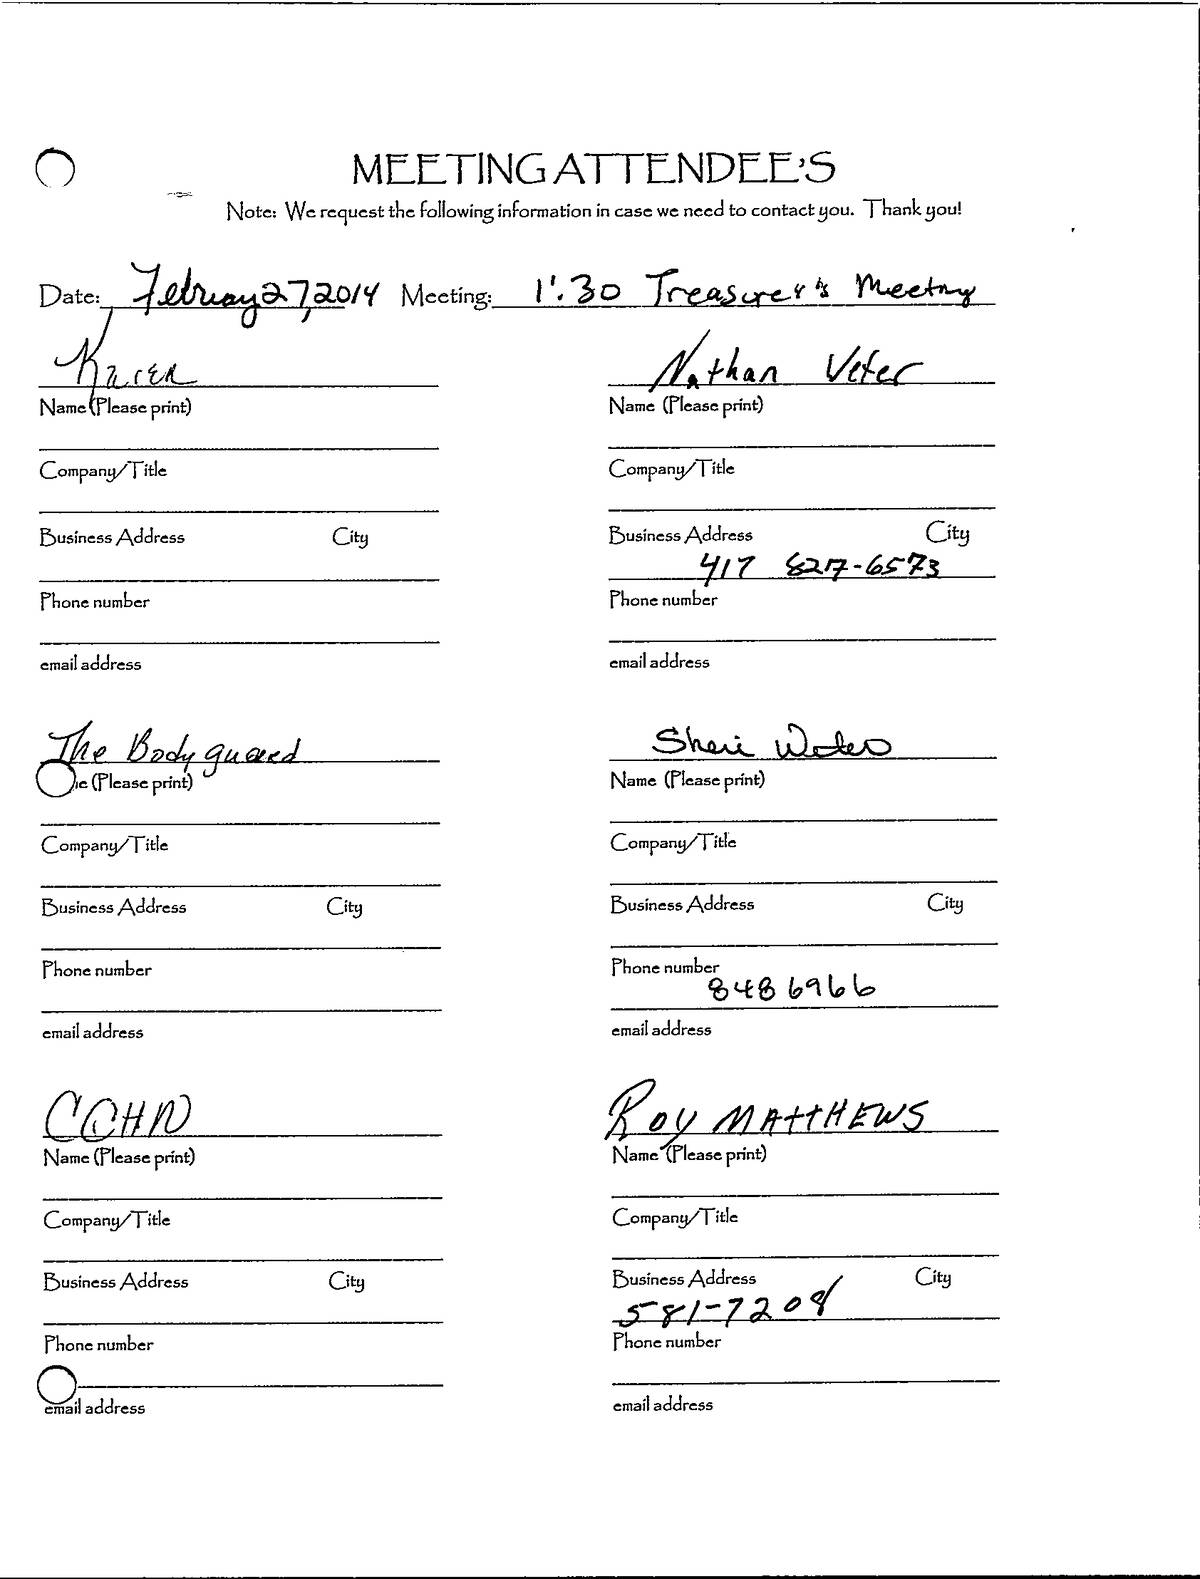 MEETING ATTENDEE'S
Note: We request the following information in case we need to contact you. Thank you!
Date: February 27, 2014 Meeting: 1:30 Treasurer's Meeting
Karen
Name (Please print)
Company/Title
Business Address City
Phone number
email address
Nathan Veter
Name (Please print)
Company/Title
Business Address City
417 827-6573
Phone number
email address
The Bodyguard
(Please print)
Company/Title
Business Address City
Phone number
email address
Sheri
Name (Please print)
Company/Title
Business Address City
Phone number
848 6966
email address
CCHN
Name (Please print)
Company/Title
Business Address City
Phone number
email address
ROY MATTHEWS
Name (Please print)
Company/Title
Business Address City
581-7208
Phone number
email address